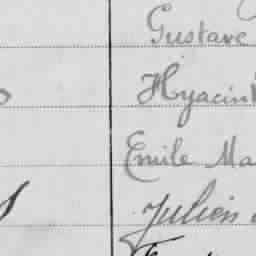 Gustave
Hyacin
Emile Ma
Julien